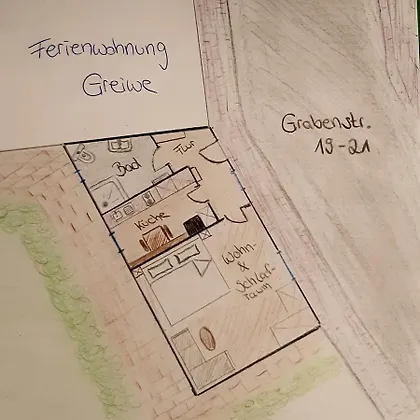 Ferienwohnung
Greiwe
Grabenstr.
19-21
Flur
Bad
Küche
Wohn-
&
Schlaf-
raum